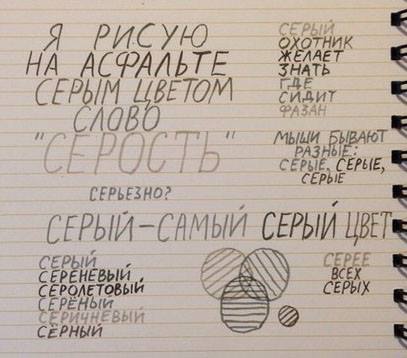 Я РИСУЮ
НА АСФАЛЬТЕ
СЕРЫМ ЦВЕТОМ
СЛОВО
"СЕРОСТЬ"
СЕРЫЙ
ОХОТНИК
ЖЕЛАЕТ
ЗНАТЬ
ГДЕ
СИДИТ
ФАЗАН
МЫШИ БЫВАЮТ
РАЗНЫЕ:
СЕРЫЕ, СЕРЫЕ,
СЕРЫЕ
СЕРЬЕЗНО?
СЕРЫЙ–САМЫЙ СЕРЫЙ ЦВЕТ
СЕРЫЙ
СЕРЕНЕВЫЙ
СЕРОЛЕТОВЫЙ
СЕРЁНЫЙ
СЕРИЧНЕВЫЙ
СЁРНЫЙ
СЕРЕЕ
ВСЕХ
СЕРЫХ